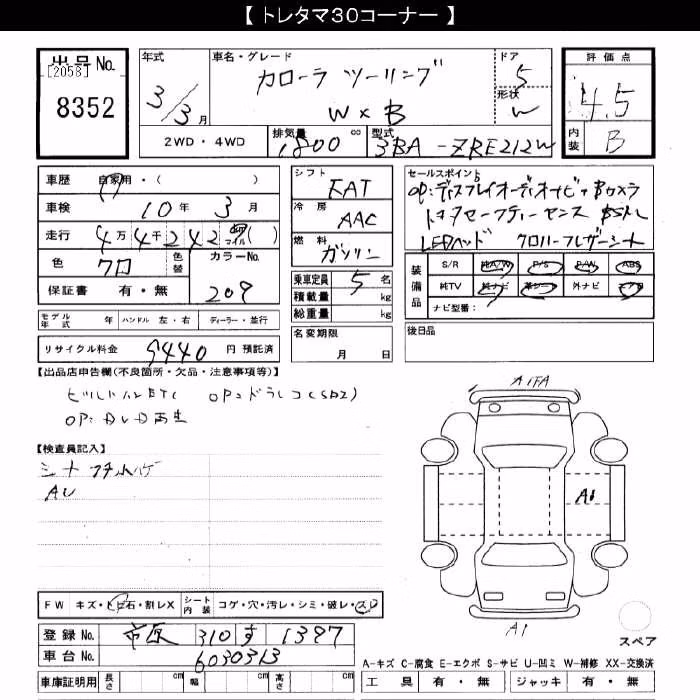 【 トレタマ30コーナー 】
出品 No.
[2058]
8352
年式
3/3月
車名・グレード
カローラ ツーリング
W×B
ドア
5
形状
W
評価点
4.5
内装
B
2WD・4WD
排気量
1800 cc
型式
3BA-ZRE212W
車歴 自家用・( )
車検 10年 3月
走行 4万4千242 km マイル ( )
色 クロ
色替
カラーNo.
209
保証書 有・無
シフト
FAT
冷房
AAC
燃料
ガソリン
乗車定員 5名
積載量 kg
総重量 kg
セールスポイント
OP:ディスプレイオーディオナビ+Bカメラ
トヨタセーフティーセンス BSM
LEDヘッド クロハーフレザーシート
装備品
S/R 純A/W P/S P/W ABS
純TV 純ナビ 革シート 外ナビ エアB
ナビ型番:
モデル年式 年 ハンドル 左・右 ディーラー・並行
名変期限
月 日
後日品
リサイクル料金 9440 円 預託済
【出品店申告欄(不良箇所・欠品・注意事項等)】
ビルトインETC OP:ドラレコ(SD2)
OP:DVD再生
【検査員記入】
AU
A1FA
A1
A1
スペア
FW キズ・トビ石・割レX
シート内装 コゲ・穴・汚レ・シミ・破レ・スレ
登録 No. 市原 310 す 1397
車台 No. 6030313
車庫証明用 長さ cm 幅 cm 高さ cm
A-キズ C-腐食 E-エクボ S-サビ U-凹ミ W-補修 XX-交換済
工具 有・無 ジャッキ 有・無